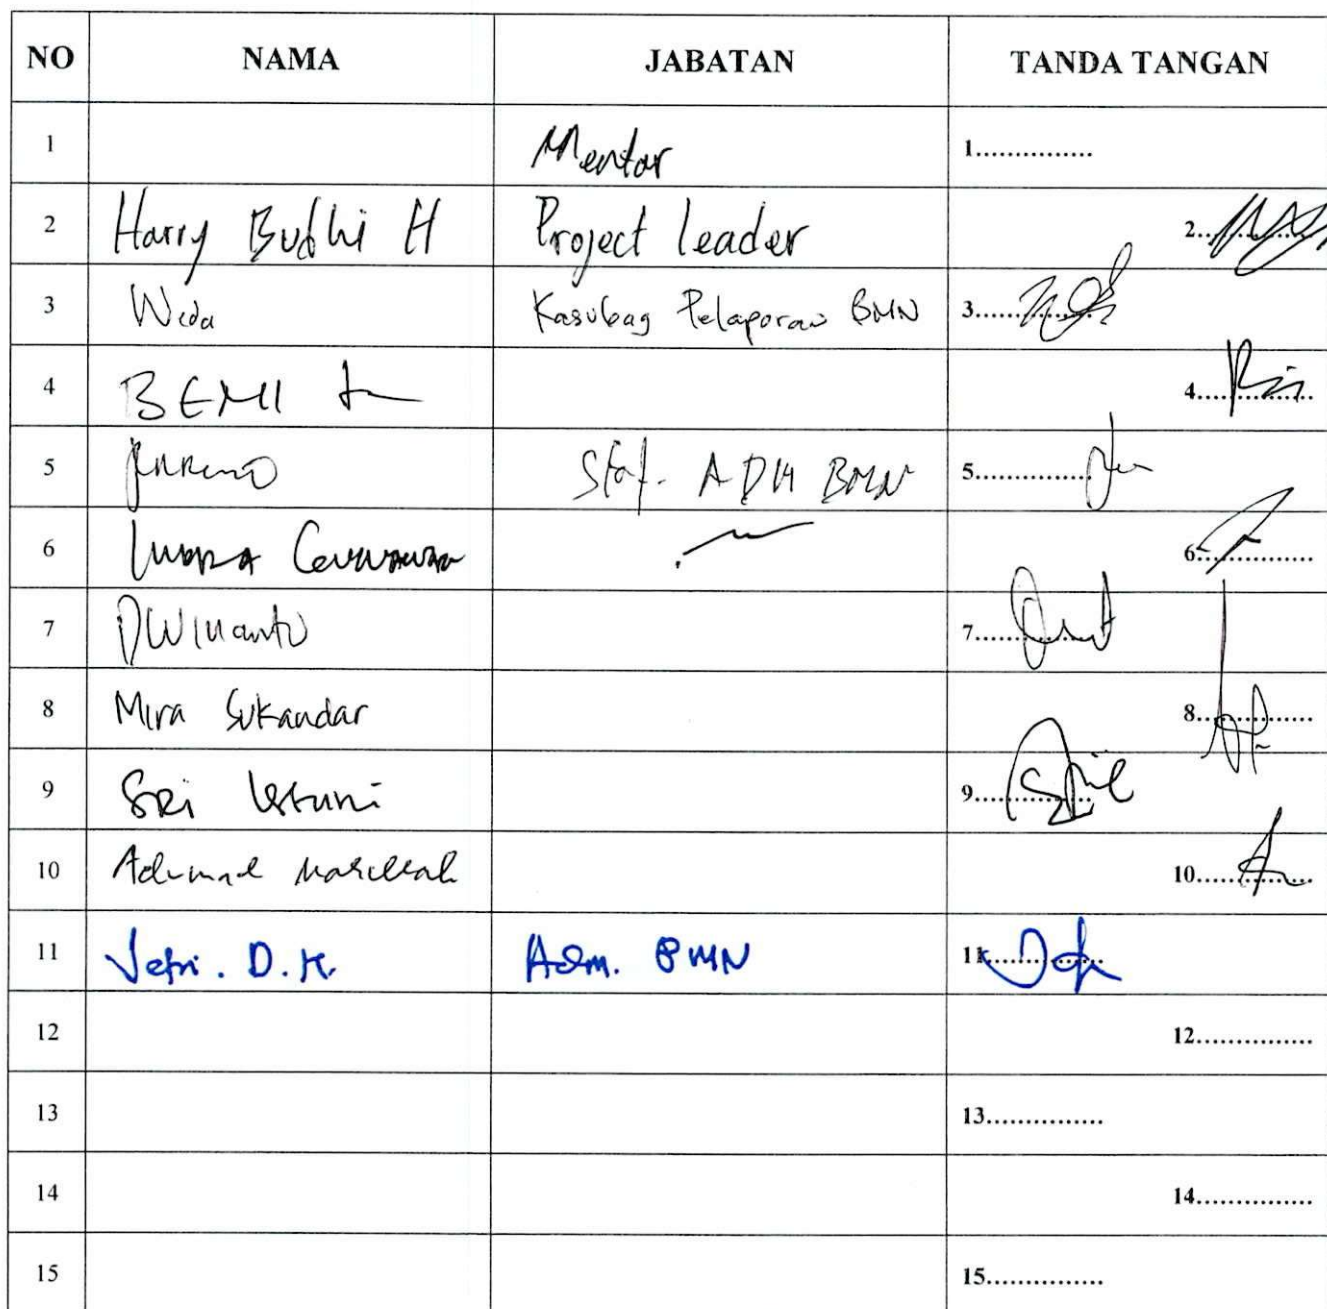 NO NAMA JABATAN TANDA TANGAN
1 Mentor 1...............
2 Harry Budhi H Project leader 2...............
3 Weda Kasubag Pelaporan BMN 3...............
4 BEMI 4...............
5 Staf. ADM BMN 5...............
6 INDRA Gunawan 6...............
7 DWINanto 7...............
8 Mira Sukandar 8...............
9 SRI Lestuni 9...............
10 10...............
11 Jefri. D. H. Adm. BMN 11...............
12 12...............
13 13...............
14 14...............
15 15...............